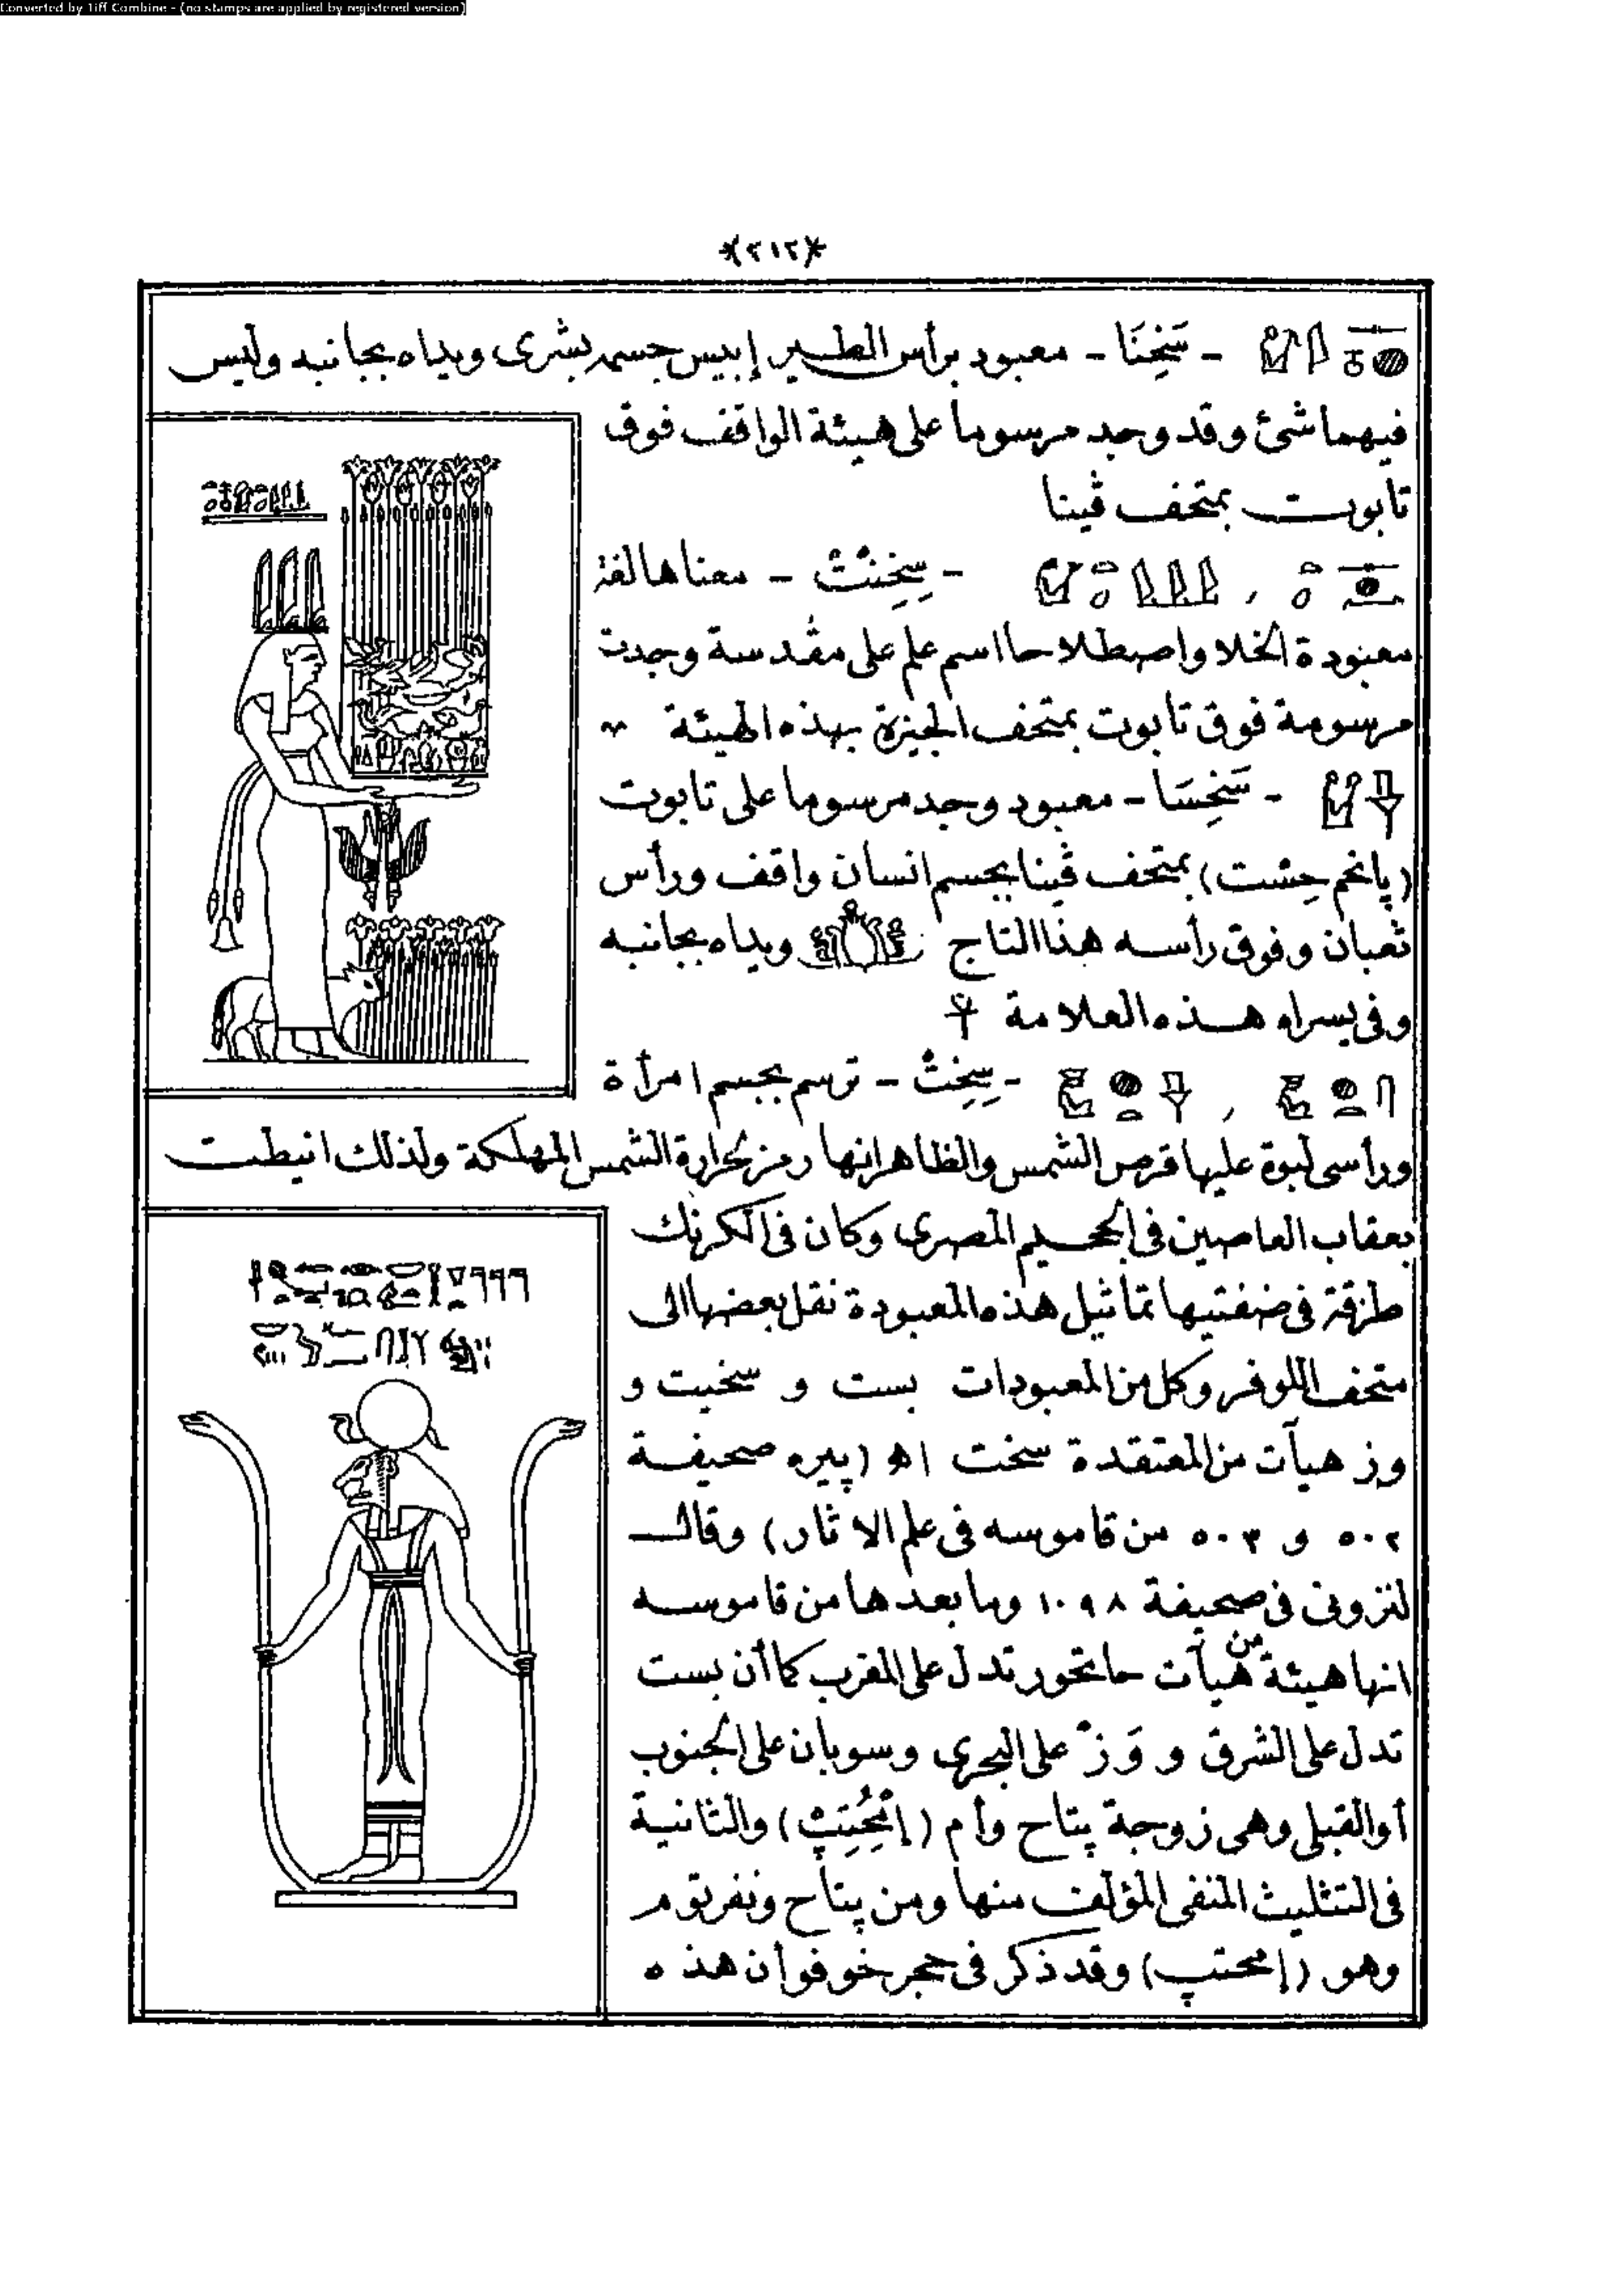 Converted by Tiff Combine - (no stamps are applied by registered version)
*(٢١٢)*
- سَخِنَا - معبود برأس الطير إبيس جسمه بشرى ويداه بجانبه وليس
فيهما شئ وقد وجد مرسوما على هيئة الواقف فوق
تابوت بمتحف ڤينا
- سِخِنتْ - معناها لغة
معبودة الخلا واصطلاحا اسم علم على مقدسة وجدت
مرسومة فوق تابوت بمتحف الجيزة بهذه الهيئة
- سَخِسَا - معبود وجد مرسوما على تابوت
(پانحم حِست) بمتحف ڤينا بجسم انسان واقف ورأس
ثعبان وفوق رأسه هذا التاج ويداه بجانبه
وفى يسراه هذه العلامة ☥
- سِخِتْ - ترسم بجسم امرأة
ورأس لبوة عليها قرص الشمس والظاهر انها رمز لحرارة الشمس المهلكة ولذلك انيطت
بعقاب العاصين فى الجحيم المصرى وكان فى الكرنك
طرقة فى ضفتيها تماثيل هذه المعبودة نقل بعضها الى
متحف اللوفر وكل من المعبودات بست و سخيت و
وز هيآت من المعتقدة سخت اه (پيره صحيفة
٥٠٢ و ٥٠٣ من قاموسه فى علم الاثار) وقال
لنزونى فى صحيفة ١٠٩٨ وما بعدها من قاموسه
انها هيئة من هيآت حاتحور تدل على المغرب كما أن بست
تدل على الشرق و وَز على البحرى وسوبان على الجنوب
أو القبلى وهى زوجة پتاح وأم (إمْحُتِپْ) والثانية
فى التثليث المنفى المؤلف منها ومن پتاح ونفرتوم
وهو (إمحتپ) وقد ذكر فى حجر خوفو أن هذه